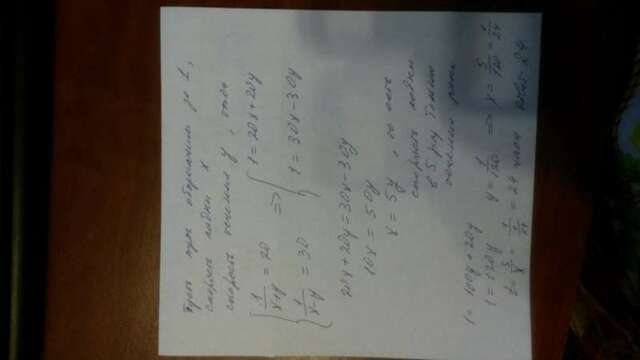 Пусть путь обозначили за 1,
скорость лодки x
скорость течения y, тогда
{ 1/(x+y) = 20 => { 1 = 20x+20y
{ 1/(x-y) = 30 { 1 = 30x-30y
20x+20y = 30x-30y
10x = 50y
x = 5y, то есть
скорость лодки
в 5 раз больше
течения реки
1 = 100y+20y
1 = 120y y = 1/120 => x = 5/120 = 1/24
= 24 часа